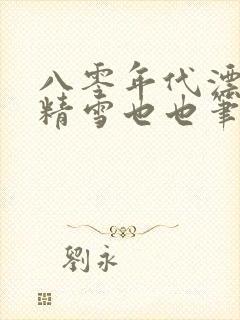 八零年代漂
精雪也也筆
劉永